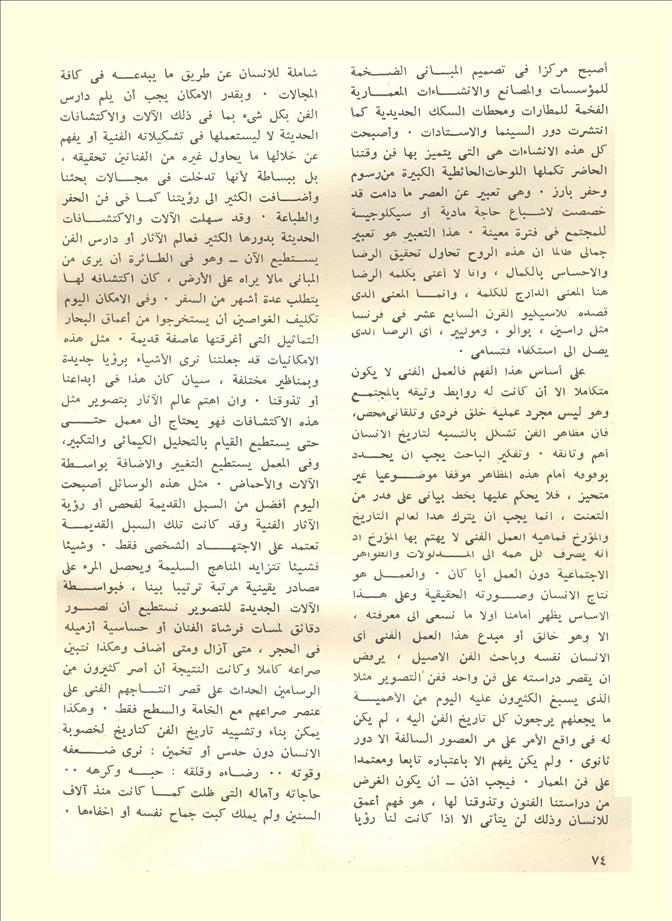 أصبح مركزا فى تصميم المبـانى الضـخمة
للمؤسسات والمصانع والانشـاءات المعمـارية
الفخمة للمطارات ومحطات السكك الحديدية كما
انتشرت دور السينما والاستادات ٠ وأصبحت
كل هذه الانشاءات هى التى يتميز بها فن وقتنا
الحاضر تكملها اللوحات الحائطية الكبيرة من رسوم
وحفر بارز ٠ وهى تعبير عن العصر ما دامت قد
خصصت لاشـباع حاجة مادية أو سيكلوجيـة
للمجتمع فى فترة معينة ٠ هذا التعبير هو تعبير
جمالى طالما ان هذه الروح تحاول تحقيق الرضا
والاحساس بالكمال ، وانا لا أعنى بكلمه الرضا
هنا المعنى الدارج للكلمة ، وانمـا المعنى الذى
قصده كلاسيكيو القرن السابع عشر فى فرنسا
مثل راسين ، بوالو ، وموليير ، أى الرضا الذى
يصل الى استكفاء فتسامى ٠
على أساس هذا الفهم فالعمل الفنى لا يكون
متكاملا الا أن كانت له روابط وثيقه بالمجتمع
وهو ليس مجرد عملية خلق فردى وتلقائى محض،
فان مظاهر الفن تشكل بالنسبه لتاريخ الانسان
أهم وثائقه ٠ وتفكير الباحث يجب ان يحـدد
بوقوفه أمام هذه المظاهر موقفا موضـوعيا غير
متحيز ، فلا يحكم عليها بخط بيانى على قدر من
التعنت ، انما يجب أن يترك هذا لعالم التاريخ
والمؤرخ فماهيه العمل الفنى لا يهتم بها المؤرخ اذ
انه يصرف كل همه الى المـدلولات والظواهر
الاجتماعية دون العمل أيا كان ٠ والعمـل هو
نتاج الانسان وصـورته الحقيقية وعلى هـذا
الاساس يظهر أمامنا أولا ما نسعى الى معرفته ،
الا وهو خالق أو مبدع هذا العمل الفنى أى
الانسان نفسه وباحث الفن الاصيل ، يرفض
ان يقصر دراسته على فن واحد ففن التصوير مثلا
الذى يسبغ الكثيرون عليه اليوم من الأهميـة
ما يجعلهم يرجعون كل تاريخ الفن اليه ، لم يكن
له فى واقع الأمر على مر العصور السالفة الا دور
ثانوى ٠ ولم يكن يفهم الا باعتباره تابعا ومعتمدا
على فن المعمار ٠ فيجب اذن ـ أن يكون الغرض
من دراستنا الفنون وتذوقنا لها ، هو فهم أعمق
للانسان وذلك لن يتأتى الا اذا كانت لنا رؤيا
شاملة للانسان عن طريق ما يبدعـه فى كافة
المجالات ٠ وبقدر الامكان يجب أن يلم دارس
الفن بكل شىء بما فى ذلك الآلات والاكتشافات
الحديثة لا ليستعملها فى تشكيلاته الفنية أو يفهم
عن خلالها ما يحاول غيره من الفنانين تحقيقه ،
بل ببساطة لأنها تدخلت فى مجـالات بحثنا
وأضـافت الكثير الى رؤيتنا كمـا فى فن الحفر
والطباعة ٠ وقد سهلت الآلات والاكتشـافات
الحديثة بدورها الكثير فعالم الآثار أو دارس الفن
يسـتطيع الآن ـ وهو فى الطـائرة أن يرى من
المبانى مالا يراه على الأرض ، كان اكتشافه لهـا
يتطلب عدة أشهر من السفر ٠ وفى الامكان اليوم
تكليف الغواصين أن يستخرجوا من أعماق البحار
التماثيل التى أغرقتها عاصفة قديمة ٠ مثل هذه
الامكانيات قد جعلتنا نرى الأشياء برؤيا جديدة
وبمناظير مختلفة ، سيان كان هذا فى ابداعنا
أو تذوقنا ٠ وان اهتم عالم الآثار بتصوير مثل
هذه الاكتشافات فهو يحتاج الى معمل حتـى
حتى يستطيع القيام بالتحليل الكيمائى والتكبير،
وفى المعمل يستطيع التغيير والاضافة بواسـطة
الآلات والأحماض ٠ مثل هذه الوسائل أصبحت
اليوم أفضل من السبل القديمة لفحص أو رؤية
الآثار الفنية وقد كانت تلك السبل القديمـة
تعتمد على الاجتهـاد الشخصى فقط ٠ وشيئا
فشيئا تتزايد المناهج السليمة ويحصل المرء على
مصادر يقينية مرتبة ترتيبا بينا ، فبواسـطة
الآلات الجديدة للتصوير نستطيع أن نصـور
دقائق لمسات فرشاة الفنان أو حساسية أزميله
فى الحجر ، متى آزال ومتى أضاف وهكذا نتبين
صراعه كاملا وكانت النتيجة أن أصر كثيرون من
الرسامين الحداث على قصر انتـاجهم الفنى على
عنصر صراعهم مع الخامة والسطح فقط ٠ وهكذا
يمكن بناء وتشييد تاريخ الفن كتاريخ لخصوبة
الانسان دون حدس أو تخمين : نرى ضـعفه
وقوته ٠٠ رضـاءه وقلقه : حبـه وكرهه ٠٠
حاجاته وآماله التى ظلت كمـا كانت منذ آلاف
السنين ولم يملك كبت جماح نفسه أو اخفاءها ٠
٧٤